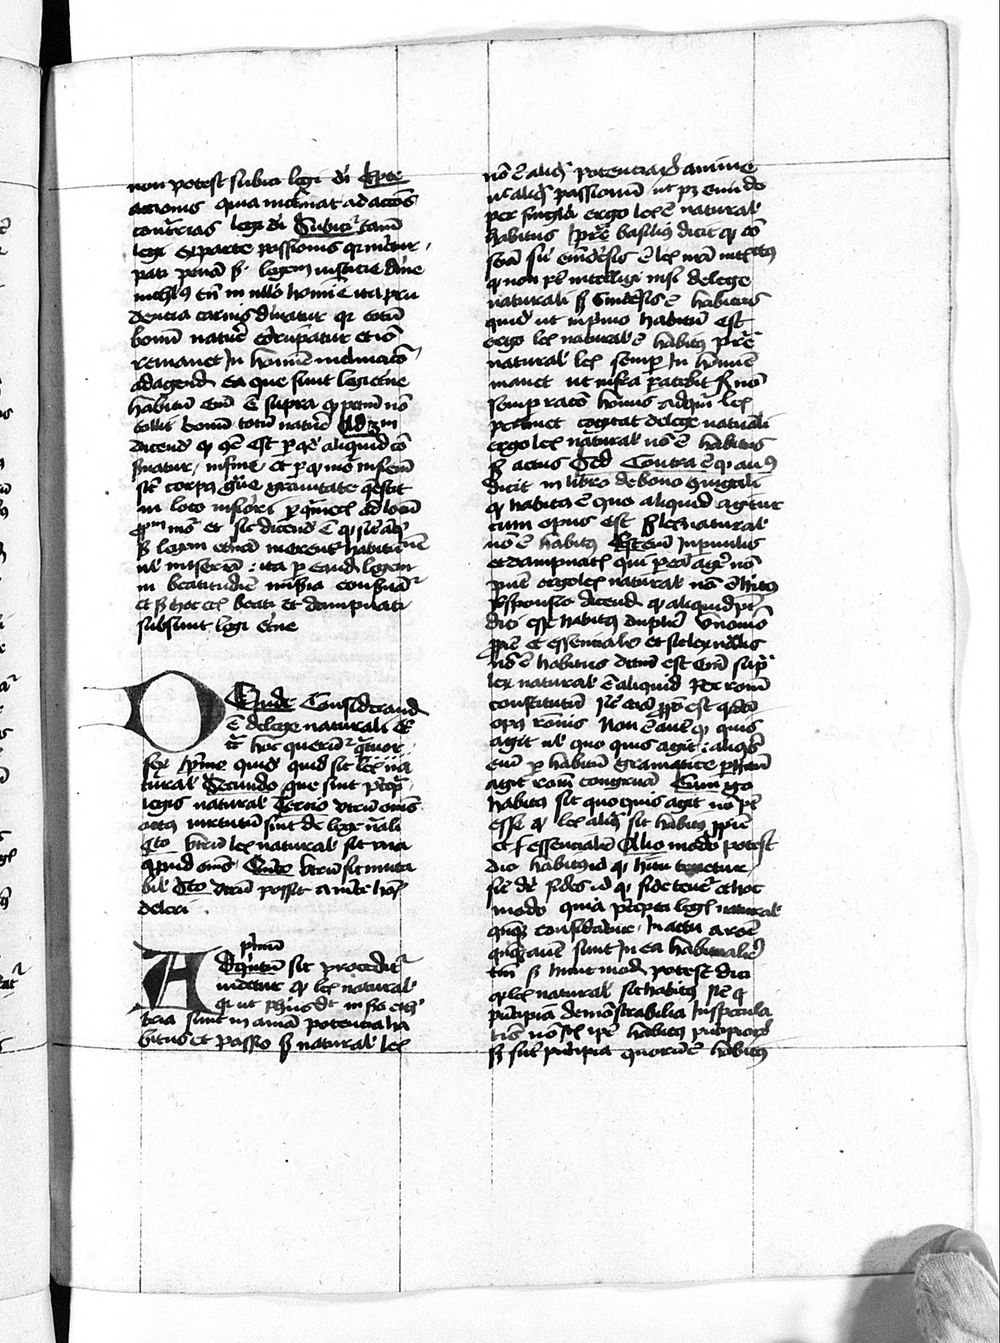 non potest subici legi dei Ex parte
actionis quia inclinat ad actiones
contrarias legi dei Subicitur tamen
legi ex parte passionis quia meretur
pati penam secundum legem iusticie divine
nichilominus tamen in nullo homine ita pru
dencia carnis dominatur quod totum
bonum nature corrumpatur et ideo
remanet in homine inclinatio
ad agendum ea que sunt legis eterne
habitum enim est supra quod peccatum non
tollit bonum totum nature Ad 3m
dicendum quod idem est per quod aliquid con
servatur in fine et per quod movetur in finem
sicut corpus grave gravitate quiescit
in loco inferiori per quam etiam ad locum
ipsum movetur et sic dicendum est quod sicut aliqui
secundum legem eternam merentur beatitudinem
vel miseriam ita per eandem legem
in beatitudine vel miseria conservantur
et secundum hoc etiam beati et dampnati
subsunt legi eterne
Deinde Considerandum
est de lege naturali Et
circa hoc queruntur quatuor
sex primo quidem quid sit lex na
turalis Secundo que sint precepta
legis naturalis Tercio utrum omnes
actus virtutum sint de lege naturali
4to utrum lex naturalis sit una
apud omnes Quinto utrum sit muta
bilis Sexto utrum possit a mente hominis
deleri
primum
Ad primum sic proceditur
videtur quod lex naturalis
quia ut philosophus dicit in secundo ethicorum
tria sunt in anima potencia ha
bitus et passio sed naturalis lex
non est aliqua potenciarum anime
nec aliqua passionum ut patet enumerando
per singula ergo lex est naturalis
habitus Preterea basilius dicit quod con
sciencia sive sinderesis est lex nostri intellectus
quod non potest intelligi nisi de lege
naturali sed sinderesis est habitus
quidam ut in primo habitum est
ergo lex naturalis est habitus Preterea
naturalis lex semper in homine
manet ut infra patebit sed non
semper racio hominis ad quam lex
pertinet cogitat de lege naturali
ergo lex naturalis non est actus
sed habitus Sed Contra est quod augustinus
dicit in libro de bono coniugali
quod habitus est quo aliquid agitur
cum opus est sed lex naturalis
non est habitus Est enim in parvulis
et dampnatis qui per eam agere non
possunt ergo lex naturalis non est habitus
Responsio dicendum quod aliquid potest
dici esse habitus dupliciter Uno modo
proprie et essencialiter et sic lex naturalis
non est habitus dictum est enim supra quod
lex naturalis est aliquid per racionem
constitutum sicut eciam proposicio est quoddam
opus racionis Non est autem idem quod quis
agit et quo quis agit aliquis
enim per habitum gramatice perficit
agit racionem congruam Cum igitur
habitus sit quo quis agit non potest
esse quod lex aliqua sit habitus proprie
et essencialiter Alio modo potest
dici habitus id quod habitu tenetur
sicut dicitur fides id quod fide tenetur et hoc
modo quia precepta legis naturalis
quandoque considerantur in actu a racione
quandoque autem sunt in ea habitualiter
tantum secundum hunc modum potest dici
quod lex naturalis sit habitus sicut eciam
principia demonstrabilia in specula
tivis non sunt ipse habitus principiorum
sed sunt principia quorum est habitus